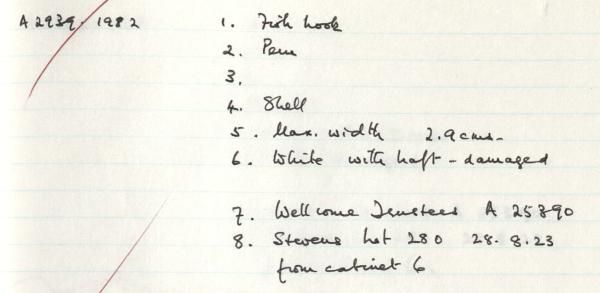 A 2939. 1982
1. Fish hook
2. Peru
3.
4. Shell
5. Max. width 2.9cms.
6. White with haft - damaged
7. Wellcome Trustees A 25890
8. Stevens Lot 280 28.8.23
from cabinet 6